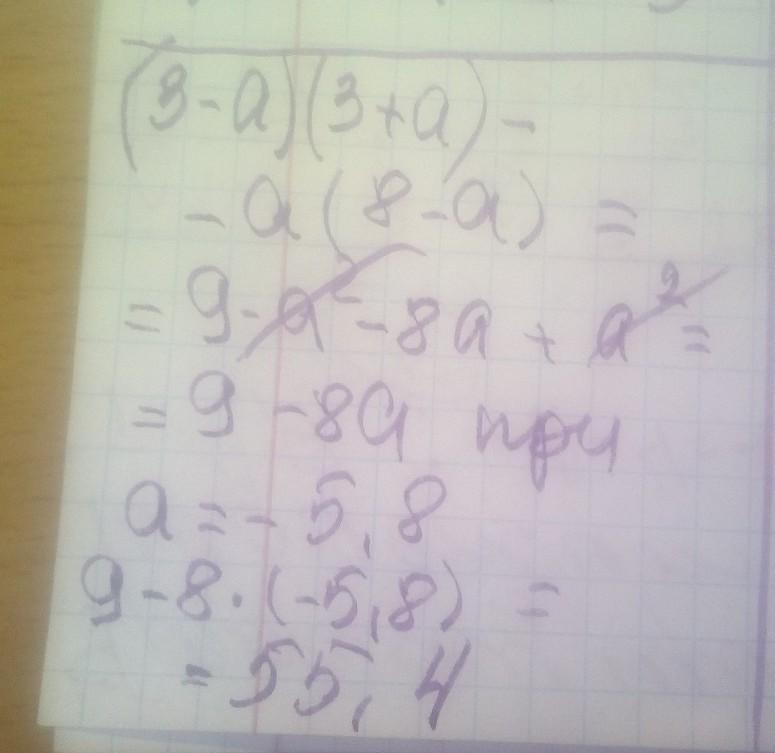 (3-a)(3+a)-
-a(8-a) =
= 9-a²-8a + a² =
= 9 -8a при
a = - 5,8
9-8·(-5,8) =
= 55,4